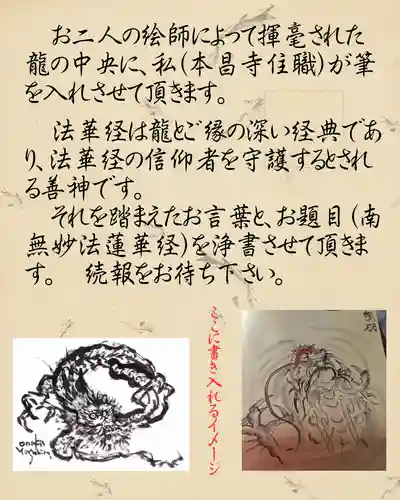 お二人の絵師によって揮毫された
龍の中央に、私(本昌寺住職)が筆
を入れさせて頂きます。
法華経は龍とご縁の深い経典であ
り、法華経の信仰者を守護するとされ
る善神です。
それを踏まえたお言葉と、お題目(南
無妙法蓮華経)を浄書させて頂きま
す。 続報をお待ち下さい。
ここに書き入れるイメージ